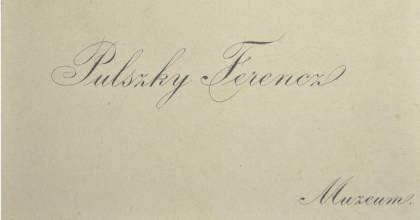 Pulszky Ferencz
Muzeum.